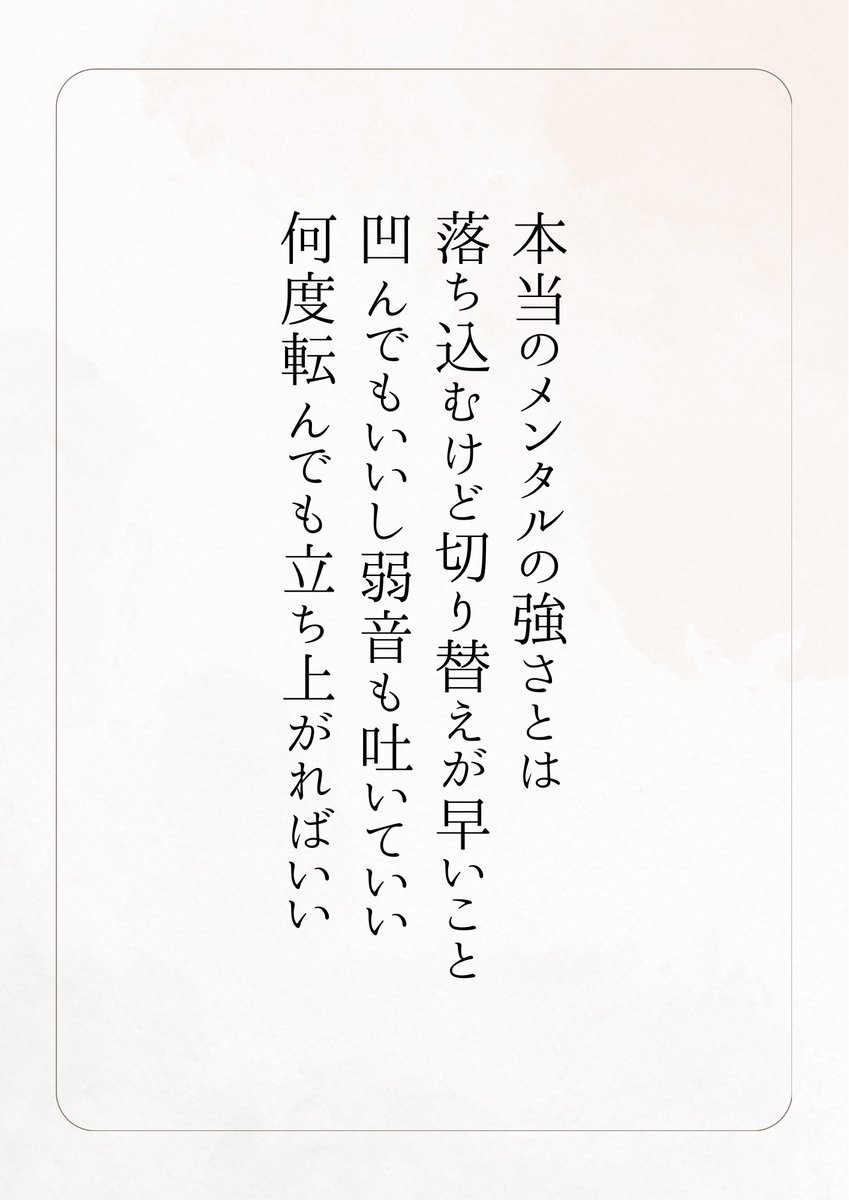 本当のメンタルの強さとは
落ち込むけど切り替えが早いこと
凹んでもいいし弱音も吐いていい
何度転んでも立ち上がればいい